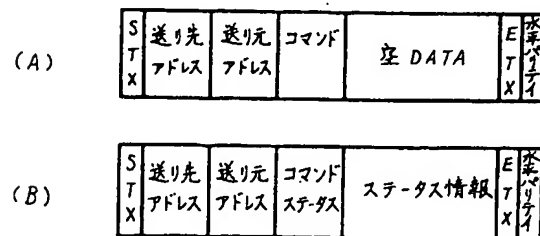 (A)
STX
送り先アドレス
送り元アドレス
コマンド
空DATA
ETX
水平パリティ
(B)
STX
送り先アドレス
送り元アドレス
コマンドステータス
ステータス情報
ETX
水平パリティ